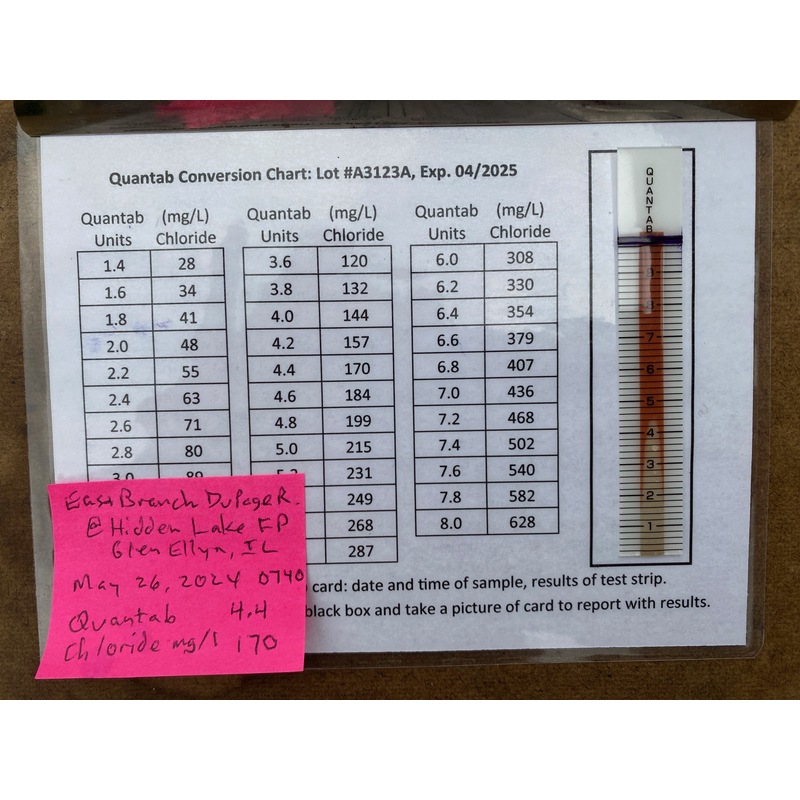 Quantab Conversion Chart: Lot #A3123A, Exp. 04/2025
Quantab Units (mg/L) Chloride
1.4 28
1.6 34
1.8 41
2.0 48
2.2 55
2.4 63
2.6 71
2.8 80
3.0 89
Quantab Units (mg/L) Chloride
3.6 120
3.8 132
4.0 144
4.2 157
4.4 170
4.6 184
4.8 199
5.0 215
5.2 231
249
268
287
Quantab Units (mg/L) Chloride
6.0 308
6.2 330
6.4 354
6.6 379
6.8 407
7.0 436
7.2 468
7.4 502
7.6 540
7.8 582
8.0 628
QUANTAB
9
8
7
6
5
4
3
2
1
card: date and time of sample, results of test strip.
black box and take a picture of card to report with results.
East Branch DuPage R.
@ Hidden Lake FP
Glen Ellyn, IL
May 26, 2024 0740
Quantab 4.4
Chloride mg/l 170